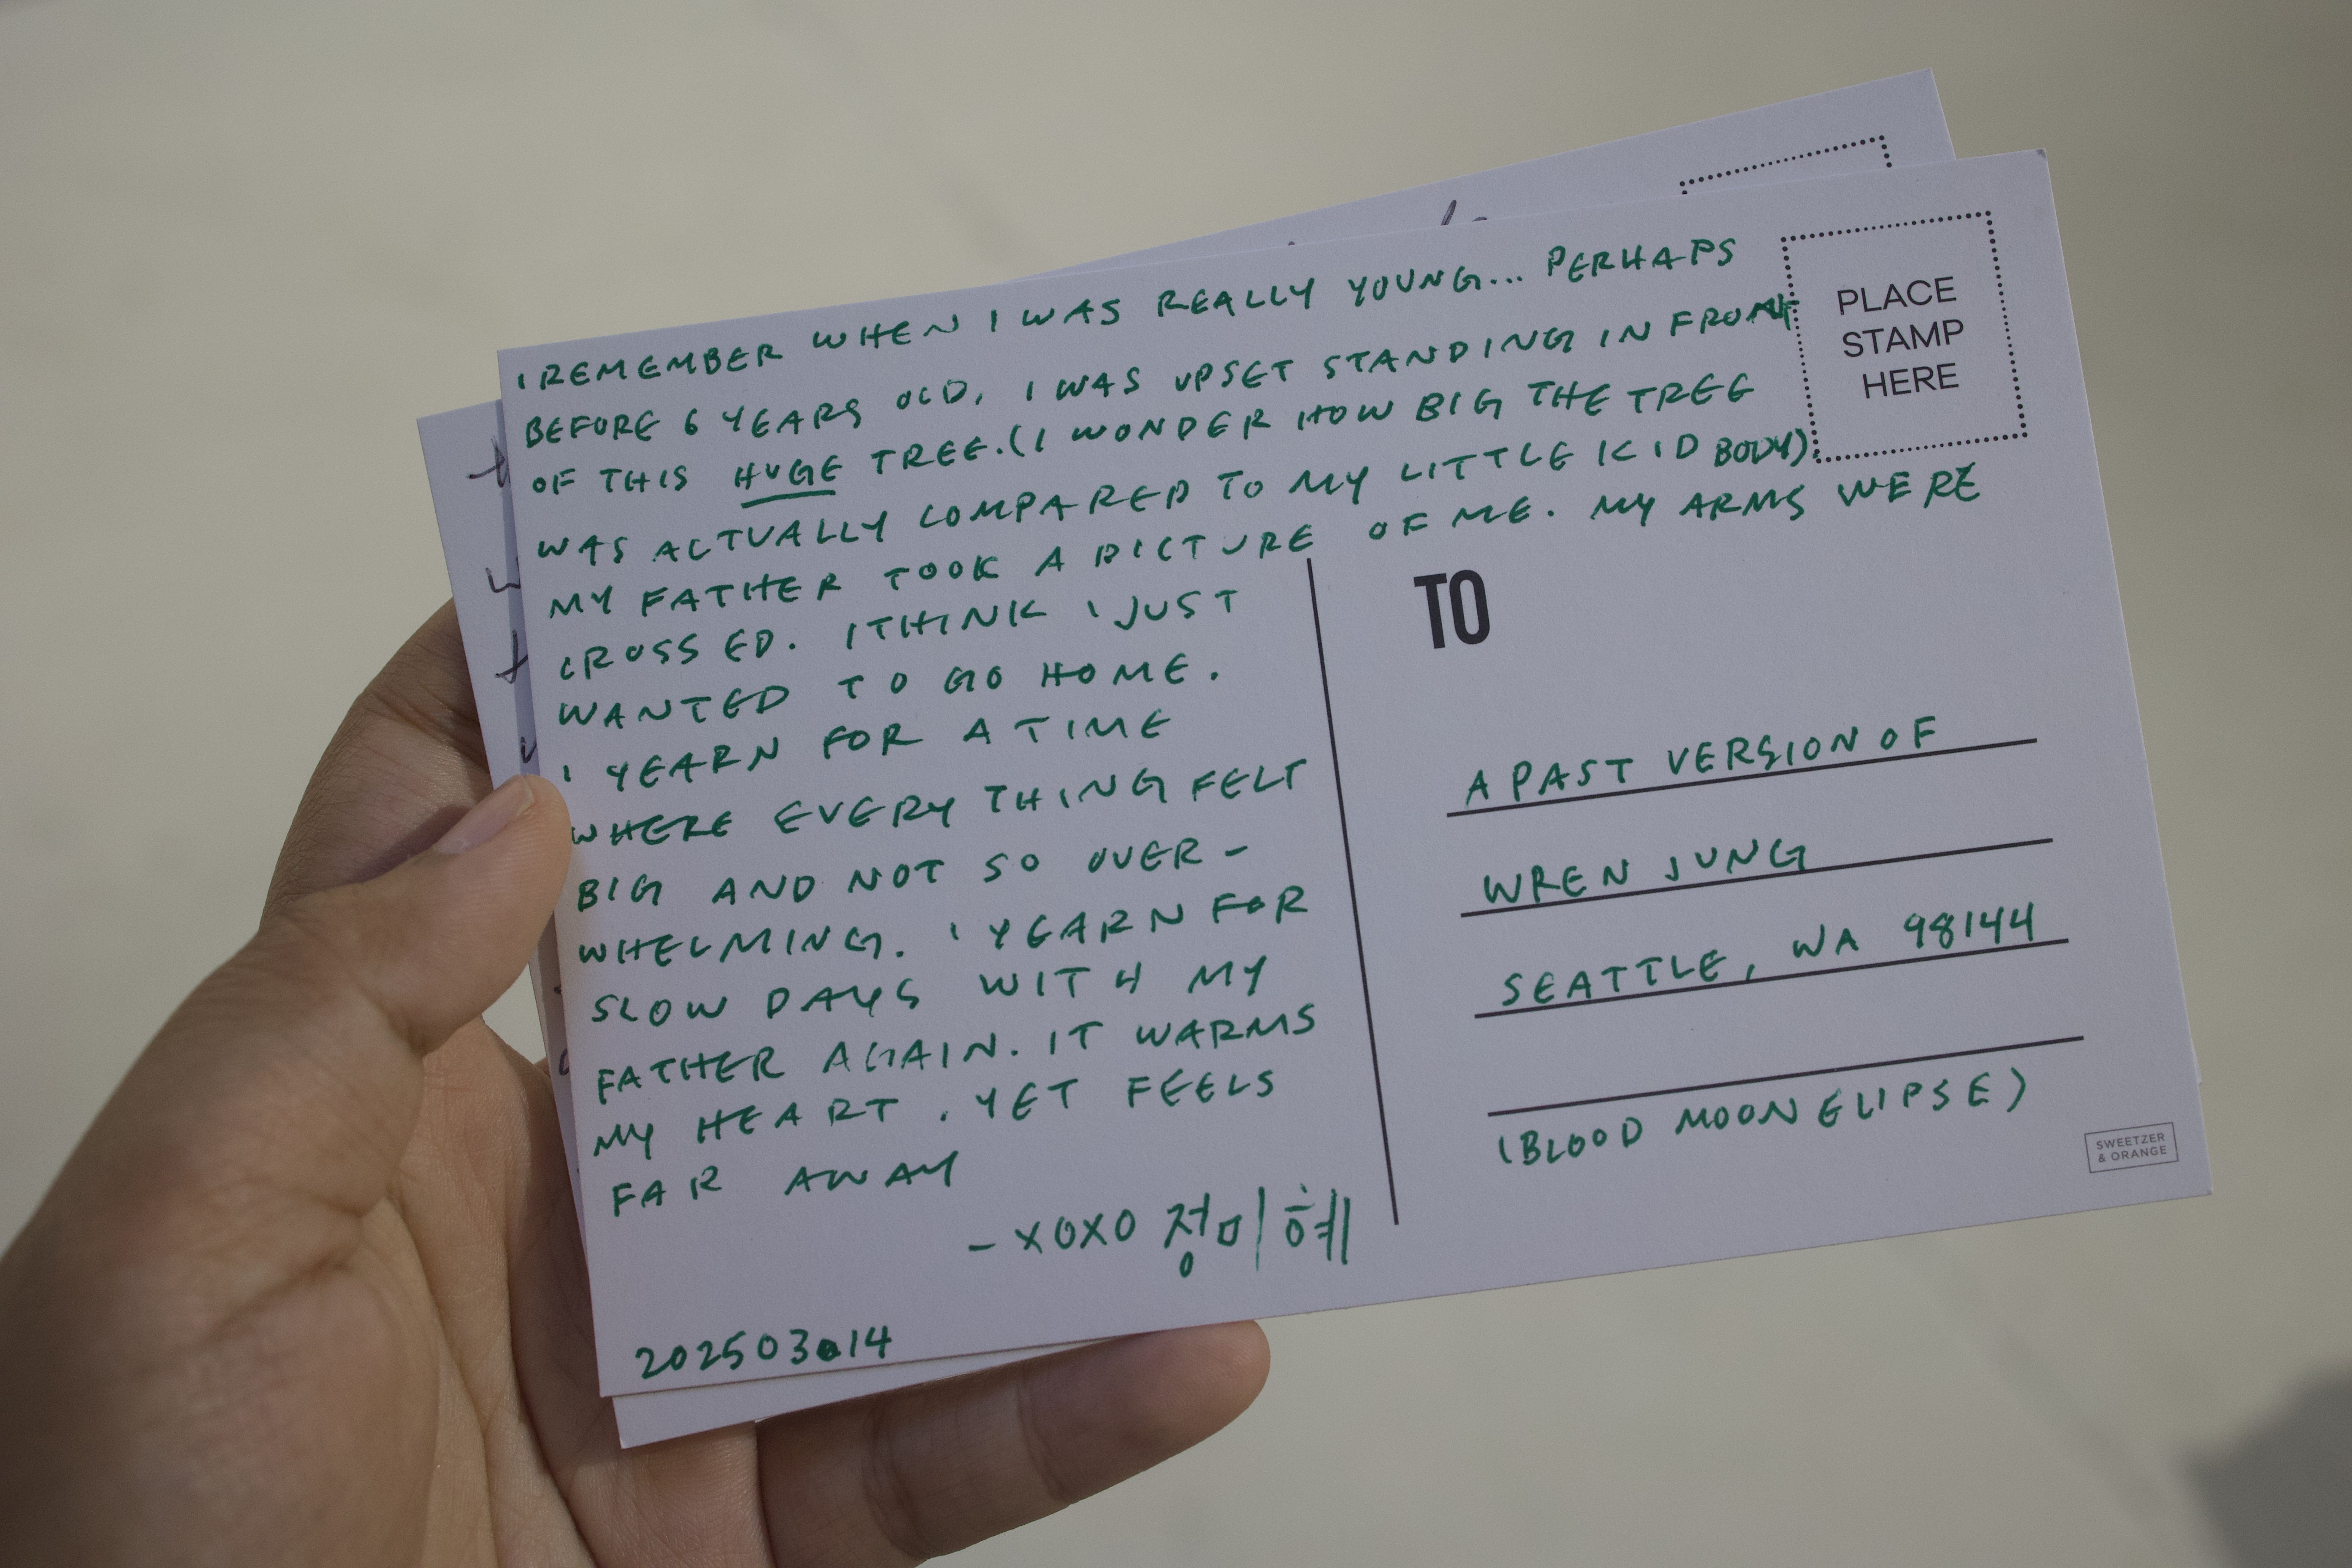 I REMEMBER WHEN I WAS REALLY YOUNG... PERHAPS
BEFORE 6 YEARS OLD, I WAS UPSET STANDING IN FRONT
OF THIS HUGE TREE. (I WONDER HOW BIG THE TREE
WAS ACTUALLY COMPARED TO MY LITTLE KID BODY).
MY FATHER TOOK A PICTURE OF ME. MY ARMS WERE
CROSSED. I THINK I JUST
WANTED TO GO HOME.
I YEARN FOR A TIME
WHERE EVERYTHING FELT
BIG AND NOT SO OVER-
WHELMING. I YEARN FOR
SLOW DAYS WITH MY
FATHER AGAIN. IT WARMS
MY HEART. YET FEELS
FAR AWAY
- XOXO 정미혜
20250314
PLACE
STAMP
HERE
TO
A PAST VERSION OF
WREN JUNG
SEATTLE, WA 98144
(BLOOD MOON ELIPSE)
SWEETZER
& ORANGE